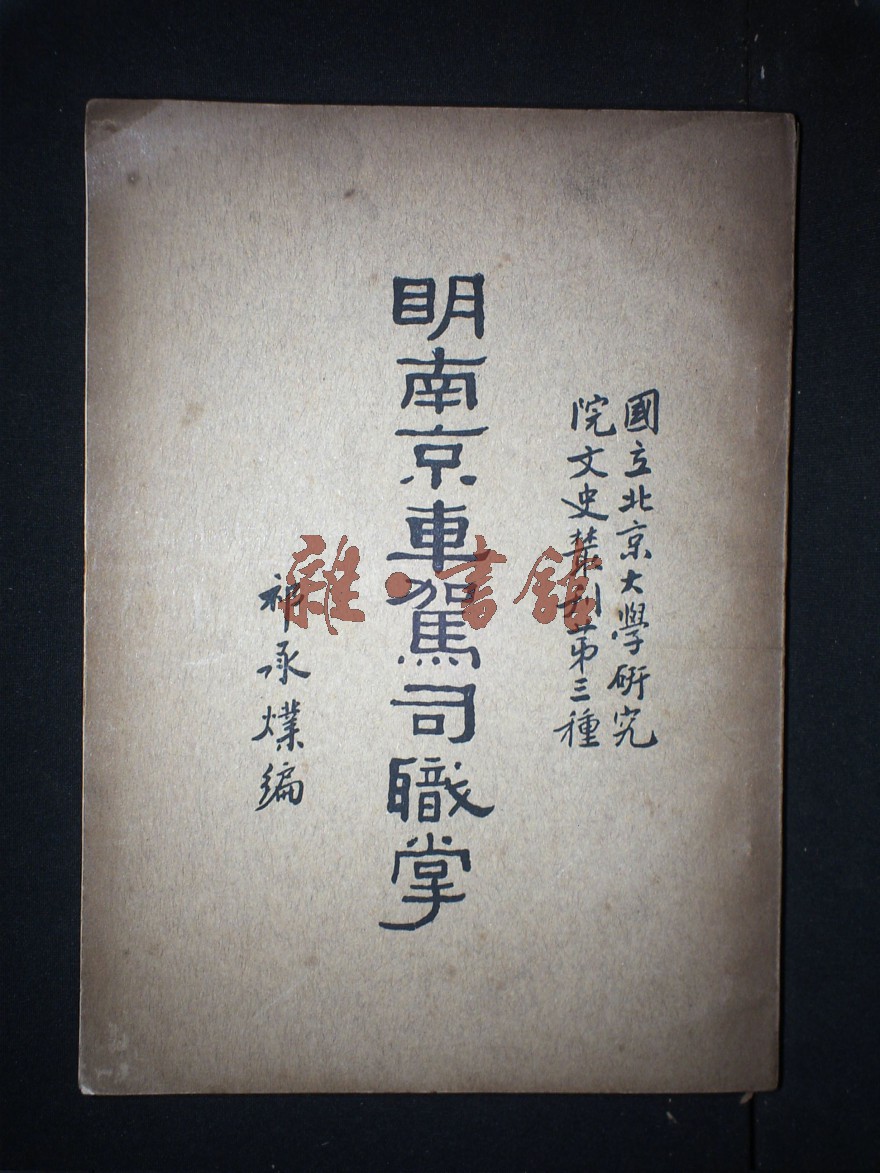 國立北京大學研究
院文史叢刊第三種
眀南京車駕司職掌
祁承㸁編
雜·書館